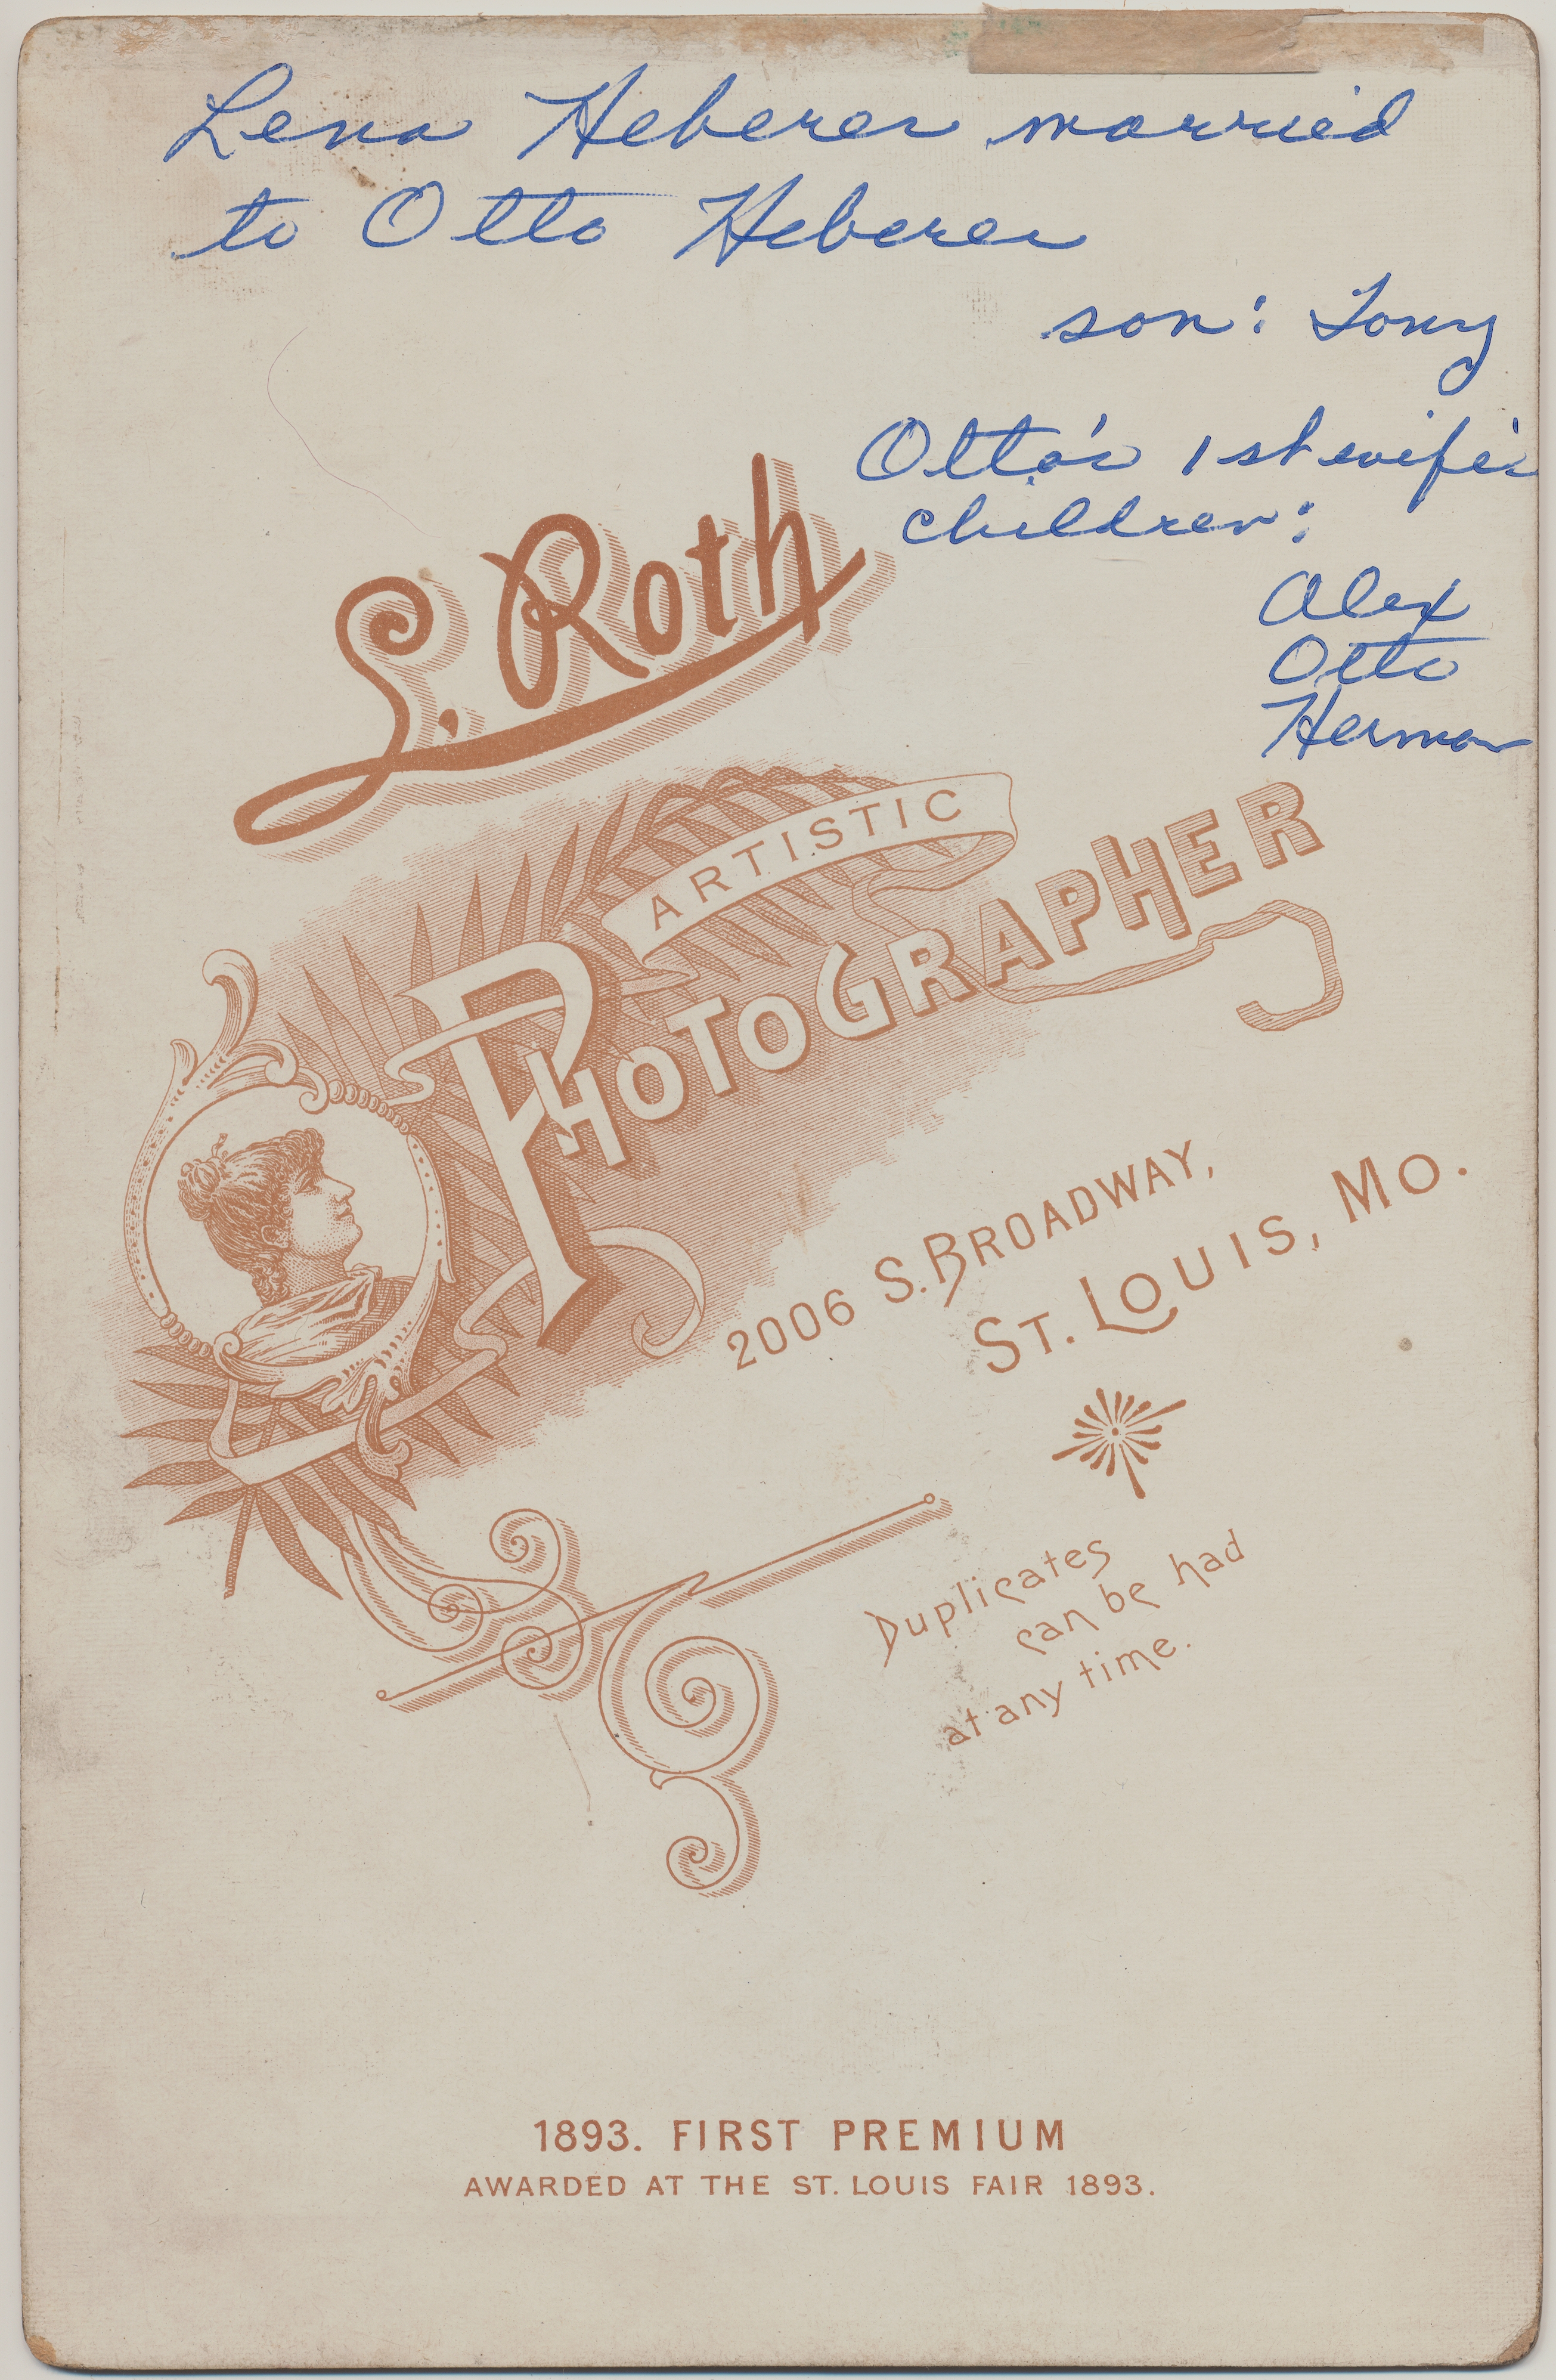 Lena Heberer married
to Otto Heberer
son: Tony
Otto's 1st wife's
children:
Alex
Otto
Herman
L. Roth
ARTISTIC
PHOTOGRAPHER
2006 S. BROADWAY,
ST. LOUIS, MO.
Duplicates
can be had
at any time.
1893. FIRST PREMIUM
AWARDED AT THE ST. LOUIS FAIR 1893.